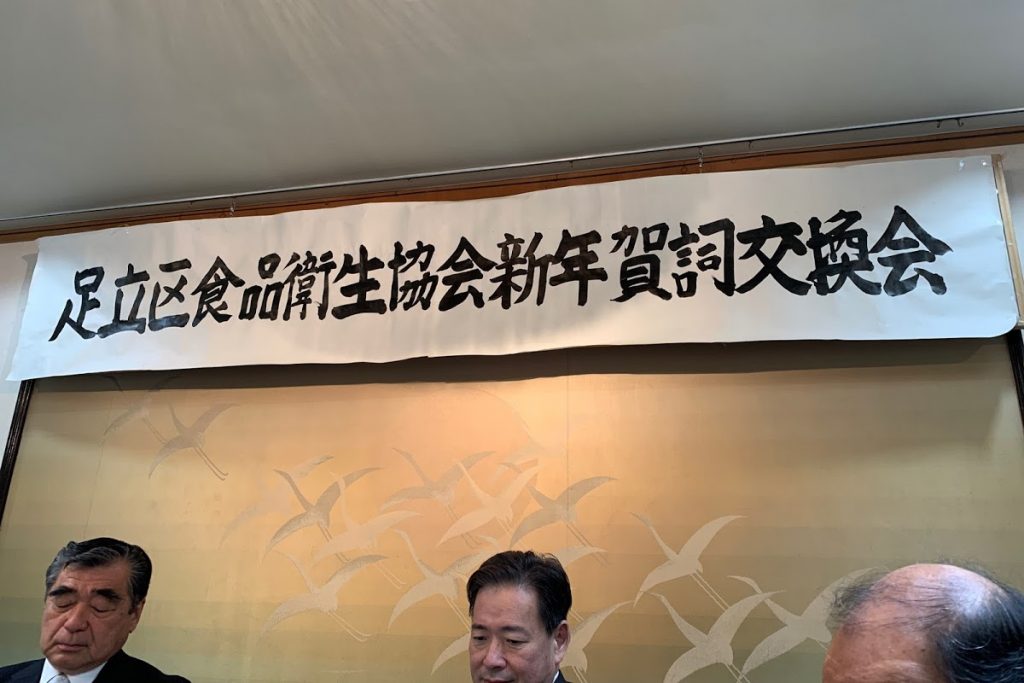 足立区食品衛生協会新年賀詞交換会